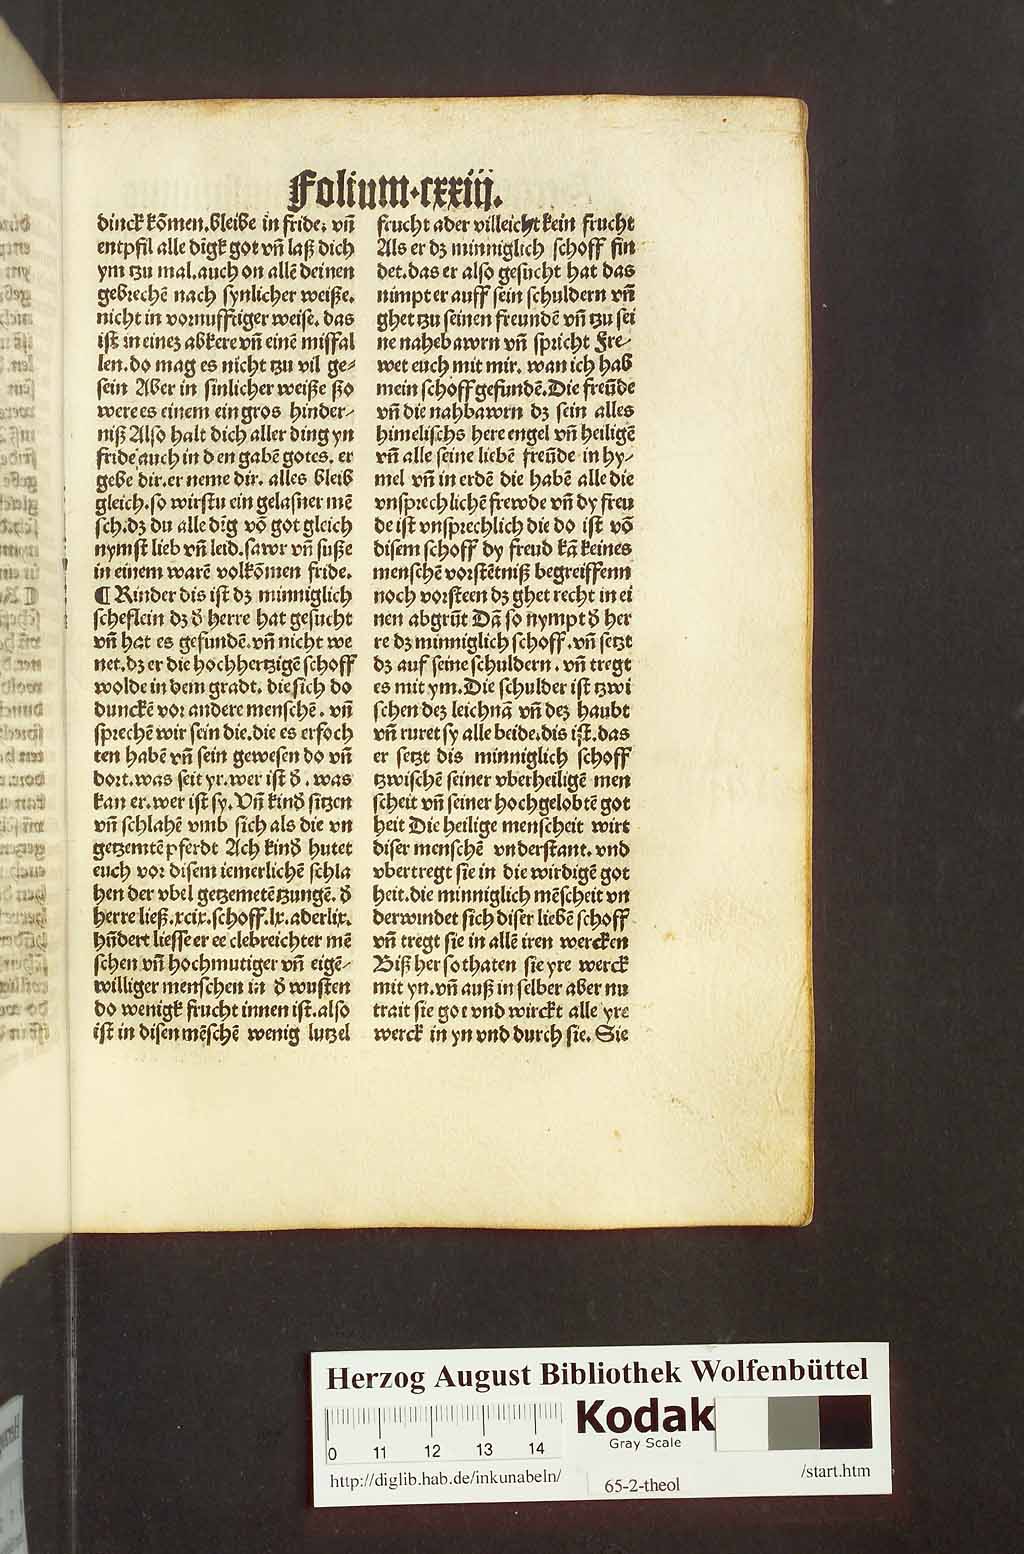 Folium·cxxiij.
dinck kõmen.bleibe in fride: vñ
entpfil alle dĩgk got vñ laß dich
ym tzu mal.auch on allẽ deinen
gebrechẽ nach synlicher weiße.
nicht in vornufftiger weise. das
ist in eineʒ abkere vñ einẽ missfal
len.do mag es nicht tzu vil ge⸗
sein Aber in sinlicher weiße ßo
were es einem ein gros hinder⸗
niß Also halt dich aller ding yn
fride auch in den gabẽ gotes. er
gebe dir.er neme dir. alles bleib
gleich.so wirstu ein gelasner mẽ
sch.dʒ du alle dĩg võ got gleich
nymst lieb vñ leid.sawr vñ suße
in einem warẽ volkõmen fride.
¶ Kinder dis ist dʒ minniglich
scheflein dʒ d̕ herre hat gesucht
vñ hat es gefundẽ.vñ nicht we
net.dʒ er die hochhertzigẽ schoff
wolde in dem gradt. die sich do
dunckẽ vor andere menschẽ. vñ
sprechẽ wir sein die.die es erfoch
ten habẽ vñ sein gewesen do vñ
dort.was seit yr.wer ist d̕. was
kan er.wer ist sy.Vñ kind̕ sitzen
vñ schlahẽ vmb sich als die vn
getzemtẽ pferdt Ach kind̕ hutet
euch vor disem iemerlichẽ schla
hen der vbel getzemetẽ tzungẽ. d̕
herre ließ.xcix.schoff.lx.aderlix.
hũdert liesse er ee clebreichter mẽ
schen vñ hochmutiger vñ eigẽ⸗
williger menschen in d̕ wusten
do wenigk frucht innen ist.also
ist in disen mẽschẽ wenig lutzel
frucht ader villeicht kein frucht
Als er dʒ minniglich schoff fin
det.das er also gesucht hat das
nimpt er auff sein schuldern vñ
ghet tzu seinen freundẽ vñ tzu sei
ne nahebawrn vñ spricht Fre⸗
wet euch mit mir. wan ich hab
mein schoff gefundẽ.Die freũde
vñ die nahbawrn dʒ sein alles
himelischs here engel vñ heiligẽ
vñ alle seine liebẽ freũde in hy⸗
mel vñ in erdẽ die habẽ alle die
vnsprechlichẽ frewde vñ dy freu
de ist vnsprechlich die do ist võ
disem schoff dy freud kã keines
menschẽ vorstẽtniß begreiffenn
noch vorsteen dʒ ghet recht in ei
nen abgrũt Dã so nympt d̕ her
re dʒ minniglich schoff.vñ setzt
dʒ auf seine schuldern. vñ tregt
es mit ym.Die schulder ist tzwi
schen deʒ leichnã vñ deʒ haubt
vñ ruret sy alle beide.dis ist.das
er setzt dis minniglich schoff
tzwischẽ seiner vberheiligẽ men
scheit vñ seiner hochgelobtẽ got
heit Die heilige menscheit wirt
diser menschẽ vnderstant. vnd
vbertregt sie in die wirdigẽ got
heit.die minniglich mẽscheit vn
derwindet sich diser liebẽ schoff
vñ tregt sie in allẽ iren wercken
Biß her so thaten sie yre werck
mit yn.vñ auß in selber aber nu
trait sie got vnd wirckt alle yre
werck in yn vnd durch sie. Sie
Herzog August Bibliothek Wolfenbüttel
Kodak
Gray Scale
0 11 12 13 14
http://diglib.hab.de/inkunabeln/
65-2-theol
/start.htm